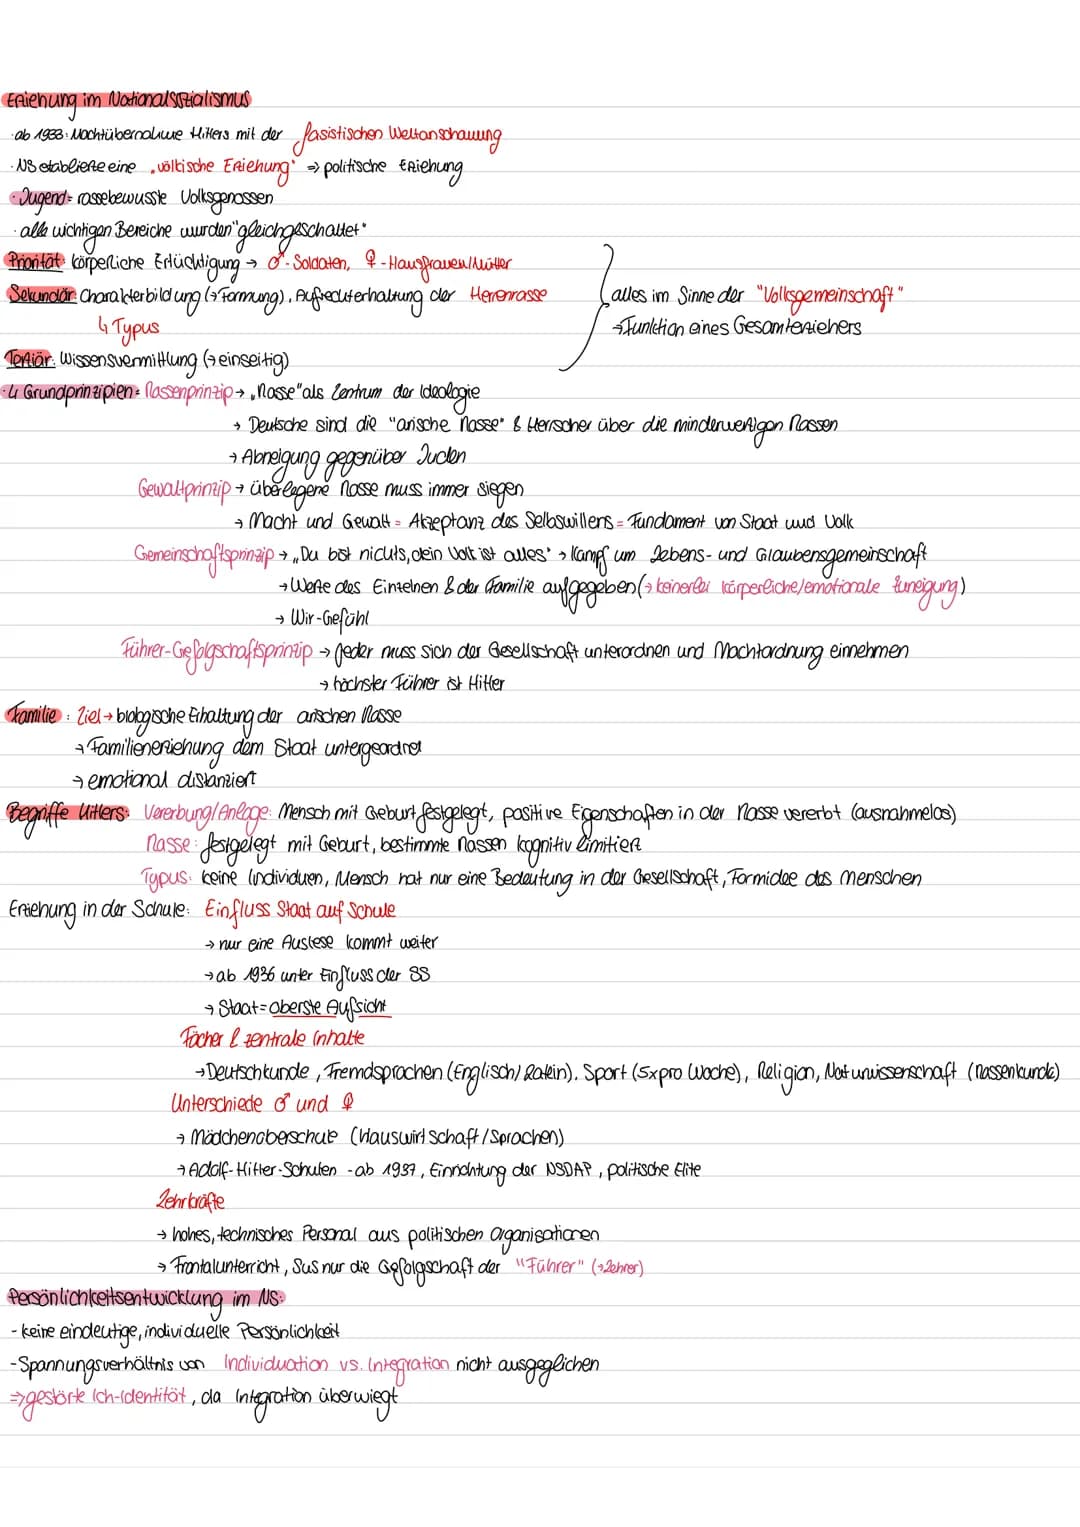 Erziehung im Nationalsozialismus
· ab 1933: Machtübernahme Hitlers mit der fasistischen Weltanschauung
· NS etablierte eine „völkische Erziehung" ⇒ politische Erziehung
· Jugend = rassebewusste Volksgenossen
· alle wichtigen Bereiche wurden "gleichgeschaltet"
Priorität: körperliche Ertüchtigung → ♂-Soldaten, ♀-Hausfrauen/Mütter
Sekundär: Charakterbildung (→Formung), Aufrechterhaltung der Herrenrasse
↳ Typus
alles im Sinne der "Volksgemeinschaft"
→Funktion eines Gesamterziehers
Tertiär: Wissensvermittlung (→einseitig)
· 4 Grundprinzipien: Rassenprinzip → „Rasse" als Zentrum der Ideologie
→ Deutsche sind die "arische Rasse" & Herrscher über die minderwertigen Rassen
→ Abneigung gegenüber Juden
Gewaltprinzip → überlegene Rasse muss immer siegen
→ Macht und Gewalt = Akzeptanz des Selbswillens = Fundament von Staat und Volk
Gemeinschaftsprinzip → „Du bist nichts, dein Volk ist alles" → Kampf um Lebens- und Glaubensgemeinschaft
→ Werte des Einzelnen & der Familie aufgegeben (→ keinerlei körperliche/emotionale Zuneigung)
→ Wir-Gefühl
Führer-Gefolgschaftsprinzip → Jeder muss sich der Gesellschaft unterordnen und Machtordnung einnehmen
→ höchster Führer ist Hitler
Familie: Ziel → biologische Erhaltung der arischen Rasse
→ Familienerziehung dem Staat untergeordnet
→ emotional distanziert
Begriffe Hitlers: Vererbung/Anlage: Mensch mit Geburt festgelegt, positive Eigenschaften in der Rasse vererbt (ausnahmelos)
Rasse: festgelegt mit Geburt, bestimmte Rassen kognitiv limitiert
Typus: keine Individuen, Mensch hat nur eine Bedeutung in der Gesellschaft, Formidee des Menschen
Erziehung in der Schule: Einfluss Staat auf Schule
→ nur eine Auslese kommt weiter
→ ab 1936 unter Einfluss der SS
→ Staat = oberste Aufsicht
Fächer & zentrale Inhalte
→ Deutschkunde, Fremdsprachen (Englisch/Latein), Sport (5x pro Woche), Religion, Naturwissenschaft (Rassenkunde)
Unterschiede ♂ und ♀
→ Mädchenoberschule (Hauswirtschaft/Sprachen)
→ Adolf-Hitler-Schulen - ab 1937, Einrichtung der NSDAP, politische Elite
Lehrkräfte
→ hohes, technisches Personal aus politischen Organisationen
→ Frontalunterricht, SuS nur die Gefolgschaft der "Führer" (→Lehrer)
Persönlichkeitsentwicklung im NS:
- keine eindeutige, individuelle Persönlichkeit
- Spannungsverhältnis von Individuation vs. Integration nicht ausgeglichen
⇒ gestörte Ich-Identität, da Integration überwiegt